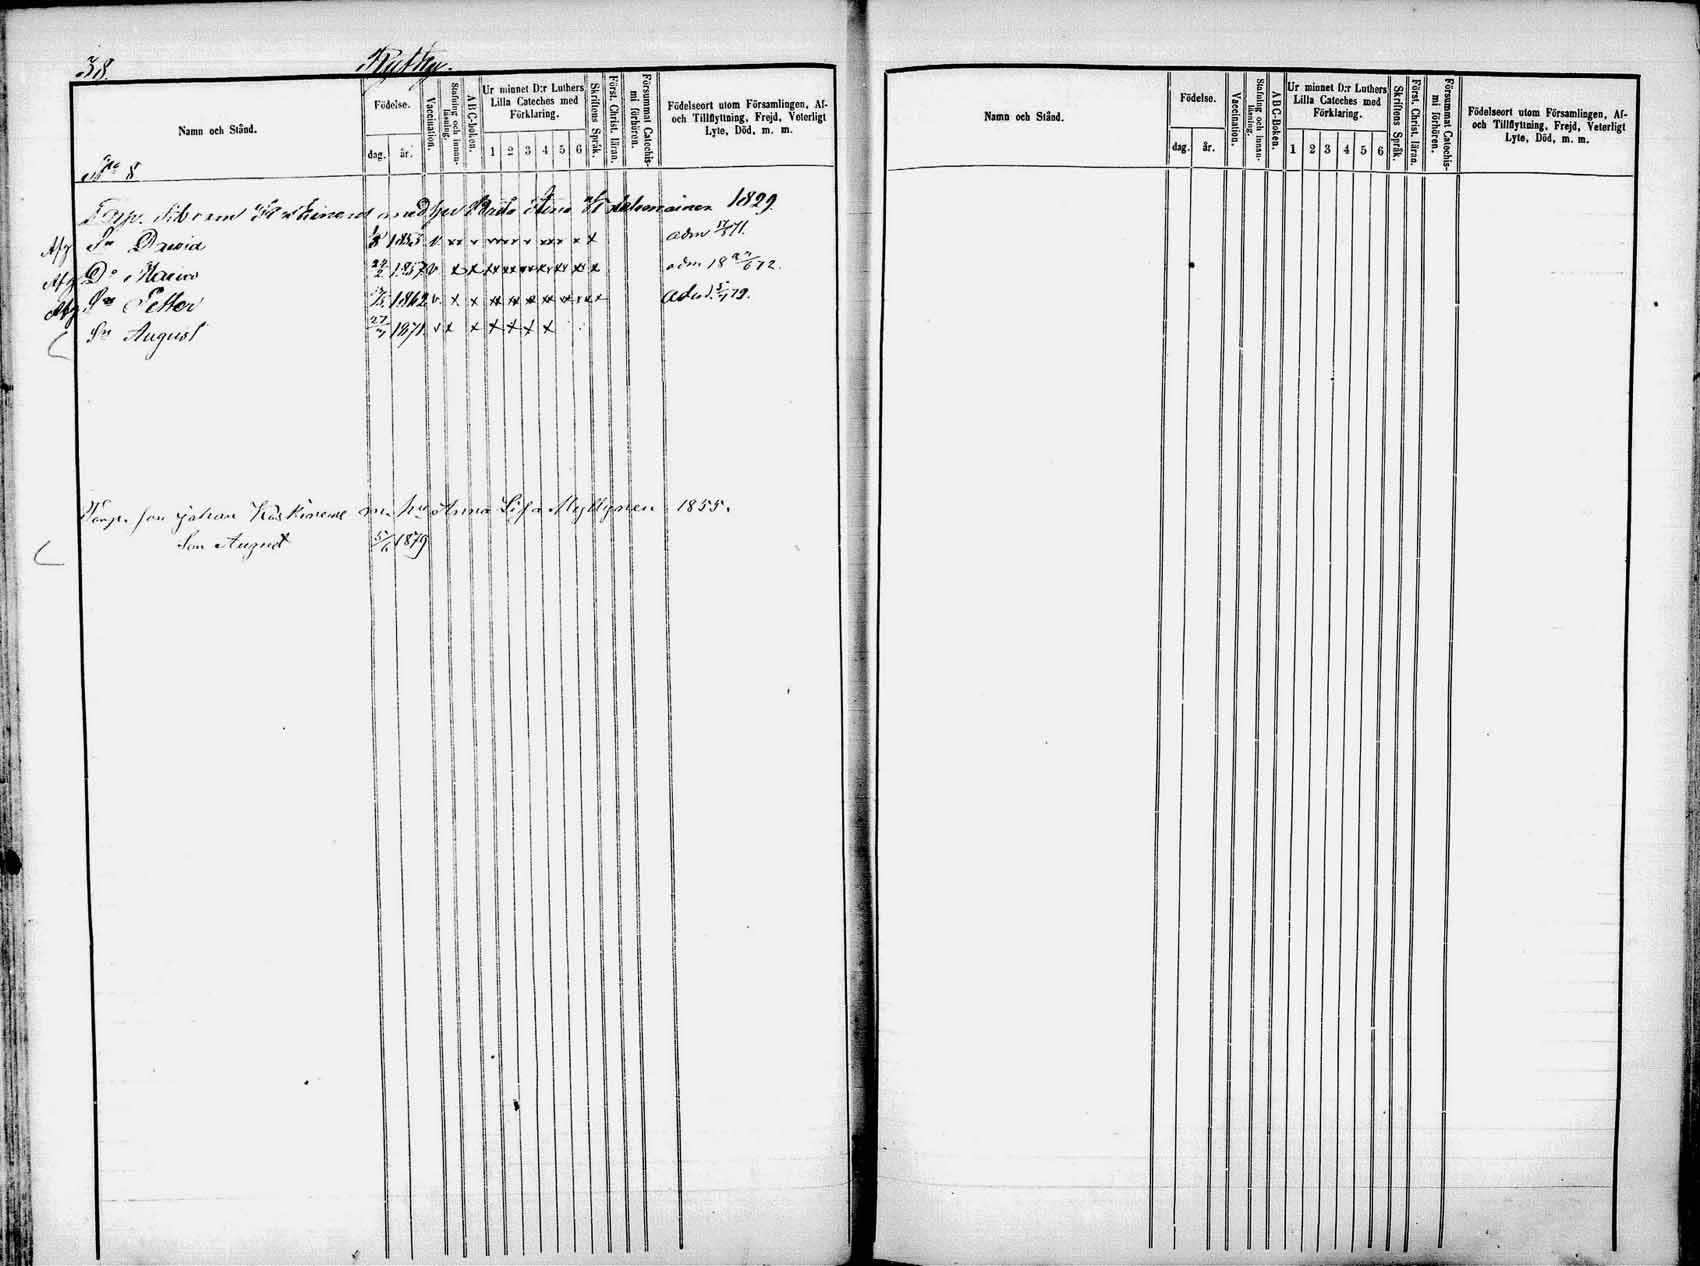 38.
Namn och Stånd.
Födelse.
dag. år.
Vaccination.
Stafning och innan-
läsning.
ABC-boken.
Ur minnet D:r Luthers
Lilla Cateches med
Förklaring.
1 2 3 4 5 6
Skriftens Språk.
Först. Christ. läran.
Försummat Catechis-
mi förhören.
Födelseort utom Församlingen, Af-
och Tillflyttning, Frejd, Veterligt
Lyte, Död, m. m.
No 8
Torp. med hu Anna 1829
Afg Sn David 1853 v adm 71.
Afg Do 24/2 1857 v adm 18 72.
Afg Sn Petter 1862 v adm 79.
Sn August 1871 v
Torp. son Johan m. hu Anna Lisa Myllynen 1855.
Son August 1879
Namn och Stånd.
Födelse.
dag. år.
Vaccination.
Stafning och innan-
läsning.
ABC-Boken.
Ur minnet D:r Luthers
Lilla Cateches med
Förklaring.
1 2 3 4 5 6
Skriftens Språk.
Först. Christ. läran.
Försummat Catechis-
mi förhören.
Födelseort utom Församlingen, Af-
och Tillflyttning, Frejd, Veterligt
Lyte, Död, m. m.